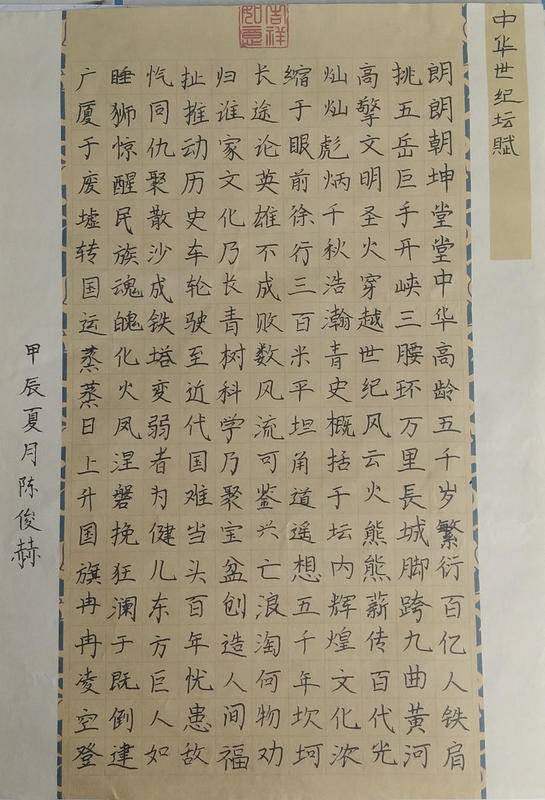 中华世纪坛赋
朗朗朝坤堂堂中华高龄五千岁繁衍百亿人铁肩
挑五岳巨手开峡三腰环万里長城脚跨九曲黄河
高擎文明圣火穿越世纪风云火熊熊薪传百代光
灿灿彪炳千秋浩瀚青史概括于坛内辉煌文化浓
缩于眼前徐行三百米平坦角道遥想五千年坎坷
长途论英雄不成败数风流可鉴兴亡浪淘何物劝
归谁家文化乃长青树科学乃聚宝盆创造人间福
扯推动历史车轮驶至近代国难当头百年忧患敌
忾同仇聚散沙成铁塔変弱者为健儿东方巨人如
睡狮惊醒民族魂魄化火凤涅磐挽狂澜于既倒建
广厦于废墟转国运蒸蒸日上升国旗冉冉凌空登
甲辰夏月陈俊赫
吉祥如意